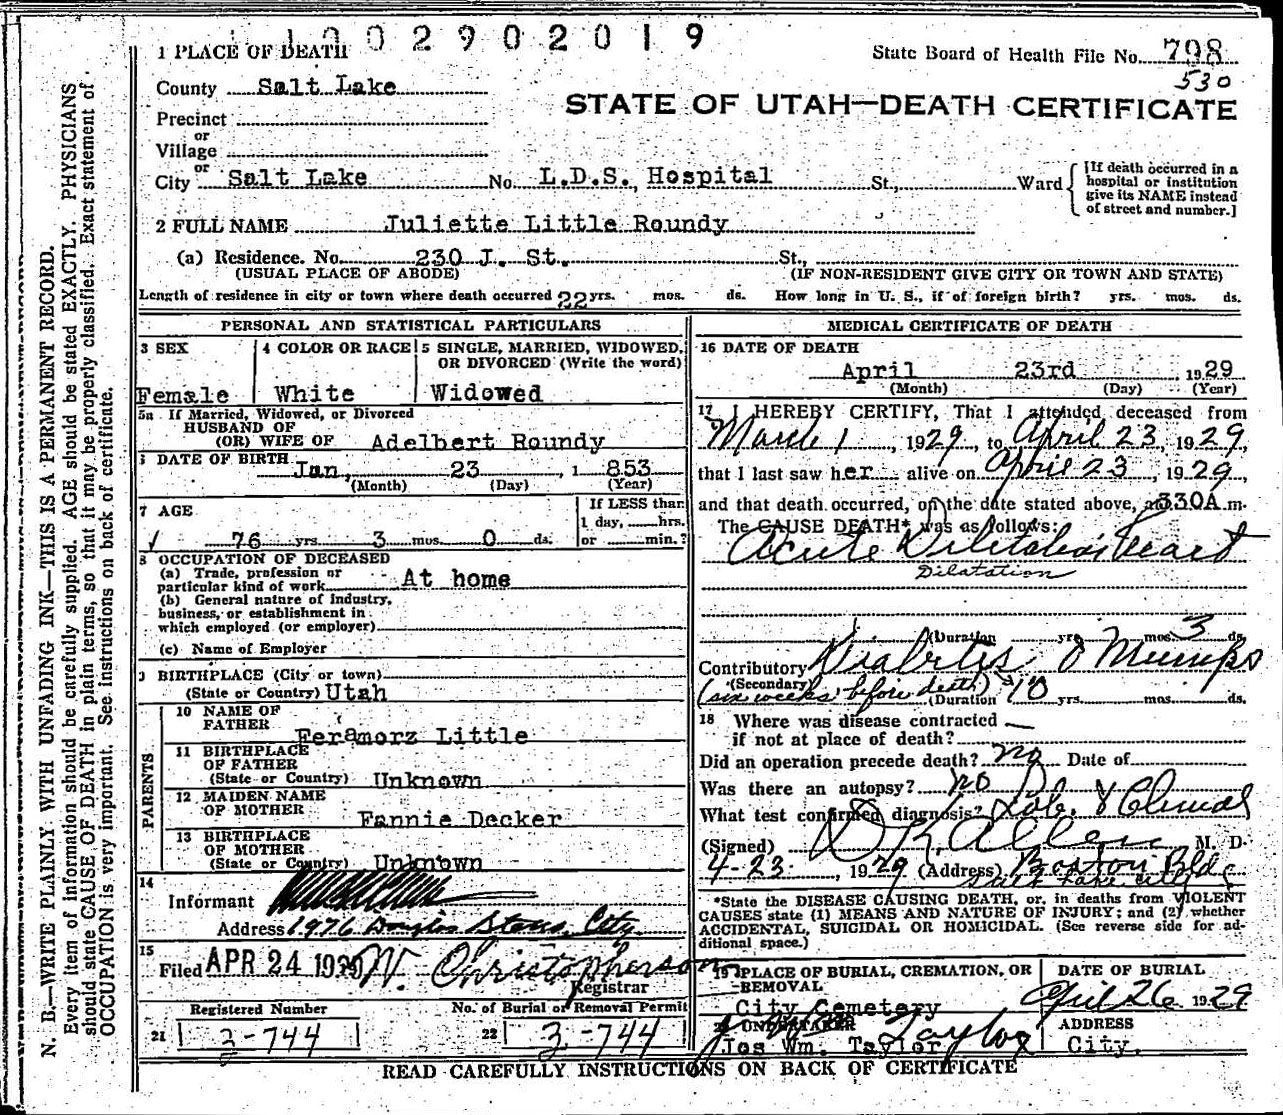 1 0 0 2 9 0 2 0 1 9
1 PLACE OF DEATH
State Board of Health File No. 798
530
County Salt Lake
STATE OF UTAH—DEATH CERTIFICATE
Precinct
or
Village
or
City Salt Lake No. L.D.S., Hospital St., Ward
[If death occurred in a hospital or institution give its NAME instead of street and number.]
2 FULL NAME Juliette Little Roundy
(a) Residence. No. 230 J. St. St.,
(USUAL PLACE OF ABODE) (IF NON-RESIDENT GIVE CITY OR TOWN AND STATE)
Length of residence in city or town where death occurred 22 yrs. mos. ds. How long in U. S., if of foreign birth? yrs. mos. ds.
PERSONAL AND STATISTICAL PARTICULARS
3 SEX
Female
4 COLOR OR RACE
White
5 SINGLE, MARRIED, WIDOWED,
OR DIVORCED (Write the word)
Widowed
5a If Married, Widowed, or Divorced
HUSBAND OF
(OR) WIFE OF Adelbert Roundy
DATE OF BIRTH Jan, 23 , 1 853
(Month) (Day) (Year)
7 AGE
76 yrs. 3 mos. 0 ds.
If LESS than
1 day, hrs.
or min.?
8 OCCUPATION OF DECEASED
(a) Trade, profession or
particular kind of work At home
(b) General nature of industry,
business, or establishment in
which employed (or employer)
(c) Name of Employer
9 BIRTHPLACE (City or town)
(State or Country) Utah
PARENTS
10 NAME OF
FATHER Feramorz Little
11 BIRTHPLACE
OF FATHER
(State or Country) Unknown
12 MAIDEN NAME
OF MOTHER Fannie Decker
13 BIRTHPLACE
OF MOTHER
(State or Country) Unknown
14
Informant
Address 1976 Douglas Street, City
15
Filed APR 24 1929 W. Christopherson
Registrar
Registered Number No. of Burial or Removal Permit
21 3-744 22 3-744
MEDICAL CERTIFICATE OF DEATH
16 DATE OF DEATH
April 23rd 1929
(Month) (Day) (Year)
17 I HEREBY CERTIFY, That I attended deceased from
March 1, 1929, to April 23, 1929,
that I last saw her alive on April 23, 1929,
and that death occurred, on the date stated above, at 330A m.
The CAUSE DEATH* was as follows:
Acute Dilitation Heart
Dilatation
(Duration yrs. mos. 3 ds.
Contributory Diabetys & Mumps
(Secondary)
(six weeks before death) (Duration 10 yrs. mos. ds.
18 Where was disease contracted
if not at place of death?
Did an operation precede death? no Date of
Was there an autopsy? no
What test confirmed diagnosis? Lab. & Clinical
(Signed) D K Allen M. D.
4-23, 1929 (Address) Boston Bldg
Salt Lake City
*State the DISEASE CAUSING DEATH, or, in deaths from VIOLENT
CAUSES state (1) MEANS AND NATURE OF INJURY; and (2) whether
ACCIDENTAL, SUICIDAL OR HOMICIDAL. (See reverse side for ad-
ditional space.)
19 PLACE OF BURIAL, CREMATION, OR
REMOVAL
City Cemetery
DATE OF BURIAL
April 26 1929
20 UNDERTAKER
Jos Wm. Taylor
Taylor
ADDRESS
City.
READ CAREFULLY INSTRUCTIONS ON BACK OF CERTIFICATE
N. B.—WRITE PLAINLY WITH UNFADING INK—THIS IS A PERMANENT RECORD.
Every item of information should be carefully supplied. AGE should be stated EXACTLY. PHYSICIANS
should state CAUSE OF DEATH in plain terms, so that it may be properly classified. Exact statement of
OCCUPATION is very important. See instructions on back of certificate.